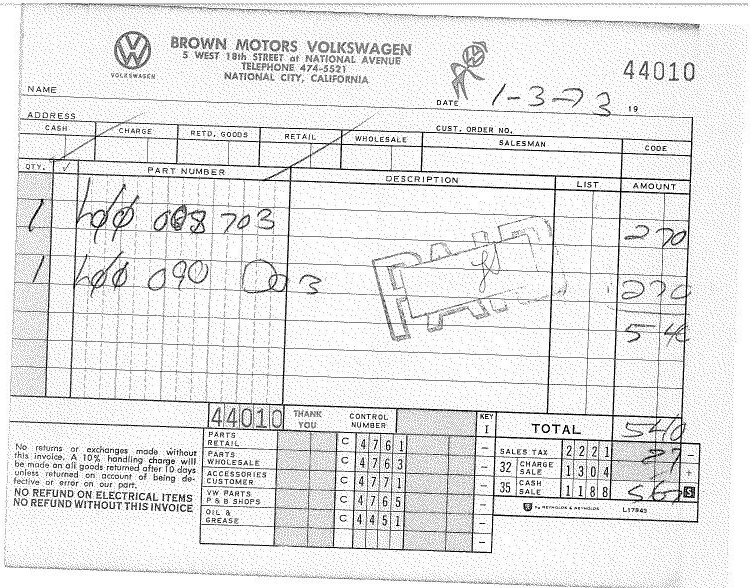 BROWN MOTORS VOLKSWAGEN
5 WEST 18th STREET at NATIONAL AVENUE
TELEPHONE 474-5521
NATIONAL CITY, CALIFORNIA
VOLKSWAGEN
44010
NAME
DATE 1-3-73 19
ADDRESS
CUST. ORDER NO.
CASH CHARGE RETD. GOODS RETAIL WHOLESALE SALESMAN CODE
QTY. ✓ PART NUMBER DESCRIPTION LIST AMOUNT
1 008 703 270
PAID
1 090 003 270
540
44010 THANK YOU CONTROL NUMBER KEY I TOTAL 540
PARTS RETAIL C 4761 –
SALES TAX 2221 27 –
PARTS WHOLESALE C 4763 –
32 CHARGE SALE 1304 +
ACCESSORIES CUSTOMER C 4771 –
35 CASH SALE 1188 567 S
VW PARTS P & B SHOPS C 4765 –
by REYNOLDS & REYNOLDS L17943
OIL & GREASE C 4451 –
–
No returns or exchanges made without
this invoice. A 10% handling charge will
be made on all goods returned after 10 days
unless returned on account of being de-
fective or error on our part.
NO REFUND ON ELECTRICAL ITEMS
NO REFUND WITHOUT THIS INVOICE